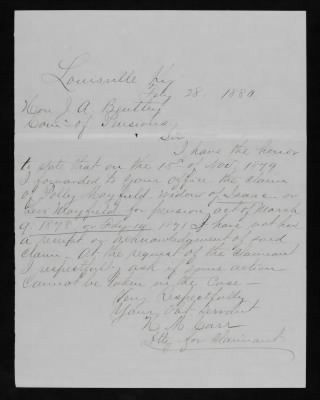 Louisville Ky
Feby 28. 1880.
Hon J. A. Bentley
Com'r of Pensions,
Sir
I have the honor
to state that on the 18th of Nov, 1879
I forwarded to your office the claim
of Polly Mayfield widow of Isaac or
Mayfield for pension, act of March
9. 1878 or Feby 14 1871 I have not had
a receipt or acknowledgment of said
claim. At the request of the Claimant
I respectfully ask if some action
cannot be taken in the Case —
Very Respectfully
Your Obt servant
N. M. Carr
Atty. for Claimant